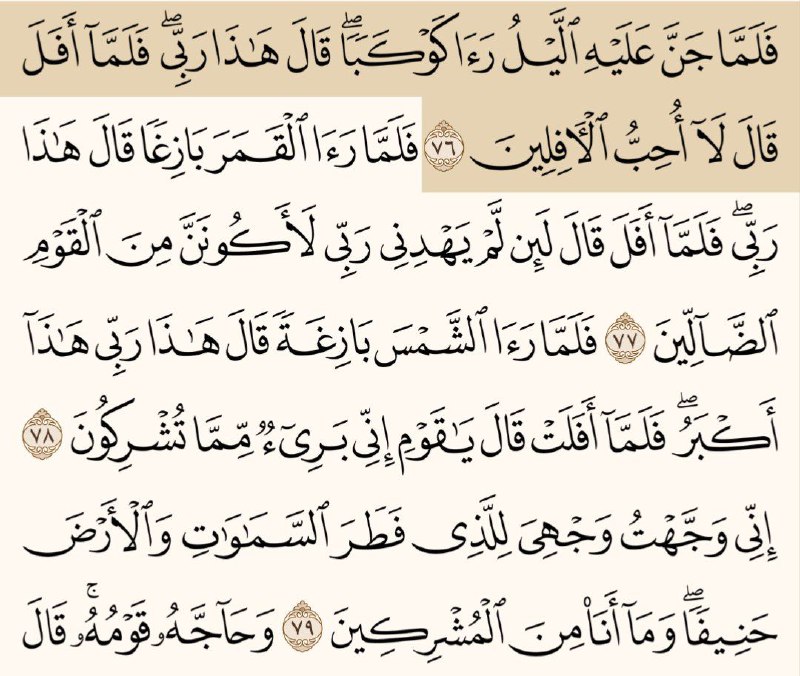 فَلَمَّا جَنَّ عَلَيْهِ ٱلَّيْلُ رَءَا كَوْكَبًاۖ قَالَ هَٰذَا رَبِّيۖ فَلَمَّآ أَفَلَ
قَالَ لَآ أُحِبُّ ٱلْأَفِلِينَ ٧٦ فَلَمَّا رَءَا ٱلْقَمَرَ بَازِغًا قَالَ هَٰذَا
رَبِّيۖ فَلَمَّآ أَفَلَ قَالَ لَئِن لَّمْ يَهْدِنِي رَبِّي لَأَكُونَنَّ مِنَ ٱلْقَوْمِ
ٱلضَّآلِّينَ ٧٧ فَلَمَّا رَءَا ٱلشَّمْسَ بَازِغَةً قَالَ هَٰذَا رَبِّي هَٰذَآ
أَكْبَرُۖ فَلَمَّآ أَفَلَتْ قَالَ يَٰقَوْمِ إِنِّي بَرِيٓءٌ مِّمَّا تُشْرِكُونَ ٧٨
إِنِّي وَجَّهْتُ وَجْهِيَ لِلَّذِي فَطَرَ ٱلسَّمَٰوَٰتِ وَٱلْأَرْضَ
حَنِيفًاۖ وَمَآ أَنَا۠ مِنَ ٱلْمُشْرِكِينَ ٧٩ وَحَآجَّهُۥ قَوْمُهُۥۚ قَالَ